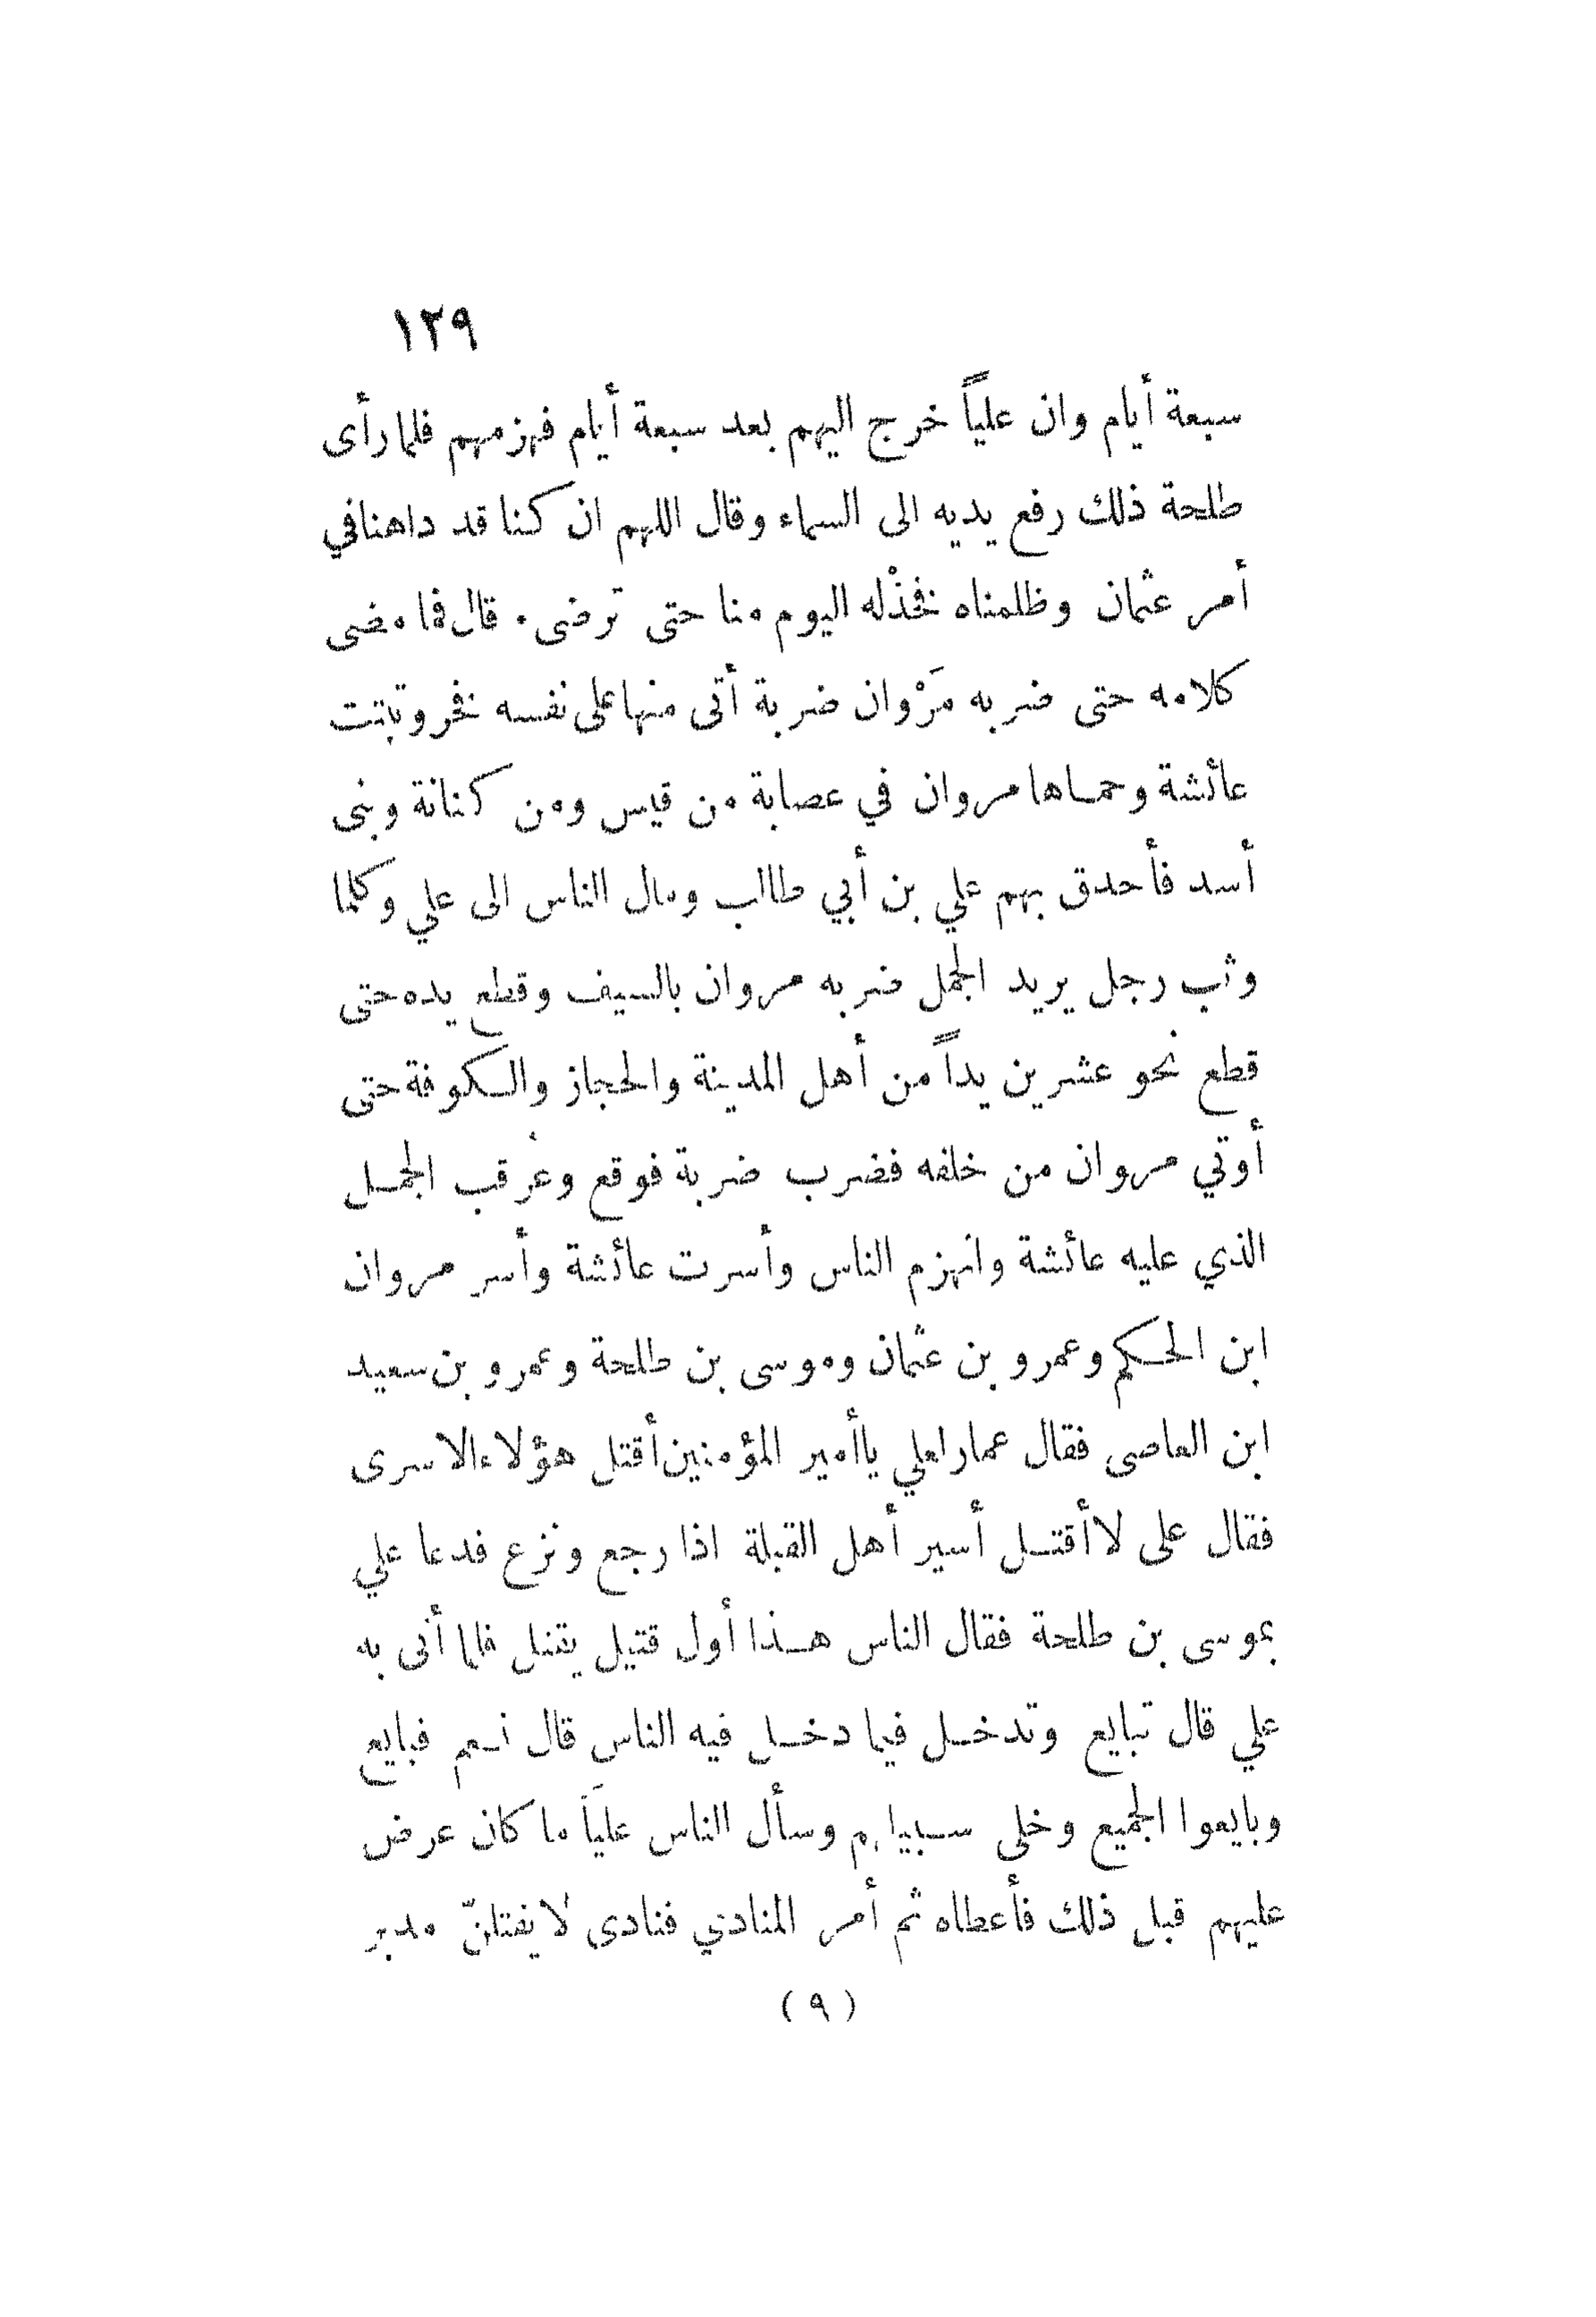 ١٢٩
سبعة أيام وان علياً خرج اليهم بعد سبعة أيام فهزمهم فلما رأى
طلحة ذلك رفع يديه الى السماء وقال اللهم ان كنا قد داهنا في
أمر عثمان وظلمناه فخذْله اليوم منا حتى ترضى . قال فما مضى
كلامه حتى ضربه مَرْوان ضربة أتى منها على نفسه فخر وثبتت
عائشة وحماها مروان في عصابة من قيس ومن كنانة وبنى
أسد فأحدق بهم علي بن أبي طالب ومال الناس الى علي وكلما
وثب رجل يريد الجمل ضربه مروان بالسيف وقطع يده حتى
قطع نحو عشرين يداً من أهل المدينة والحجاز والكوفة حتى
أوتي مروان من خلفه فضرب ضربة فوقع وعُرقب الجمل
الذي عليه عائشة وانهزم الناس وأسرت عائشة وأسر مروان
ابن الحكم وعمرو بن عثمان وموسى بن طلحة وعمرو بن سعيد
ابن العاصى فقال عمار لعلي يا أمير المؤمنين أقتل هؤلاء الاسرى
فقال على لا أقتل أسير أهل القبلة اذا رجع ونزع فدعا علي
بموسى بن طلحة فقال الناس هذا أول قتيل يقتل فلما أتى به
علي قال تبايع وتدخل فيما دخل فيه الناس قال نعم فبايع
وبايعوا الجميع وخلى سبيلهم وسأل الناس علياً ما كان عرض
عليهم قبل ذلك فأعطاه ثم أمر المنادي فنادى لا يقتلنّ مدبر
( ٩ )